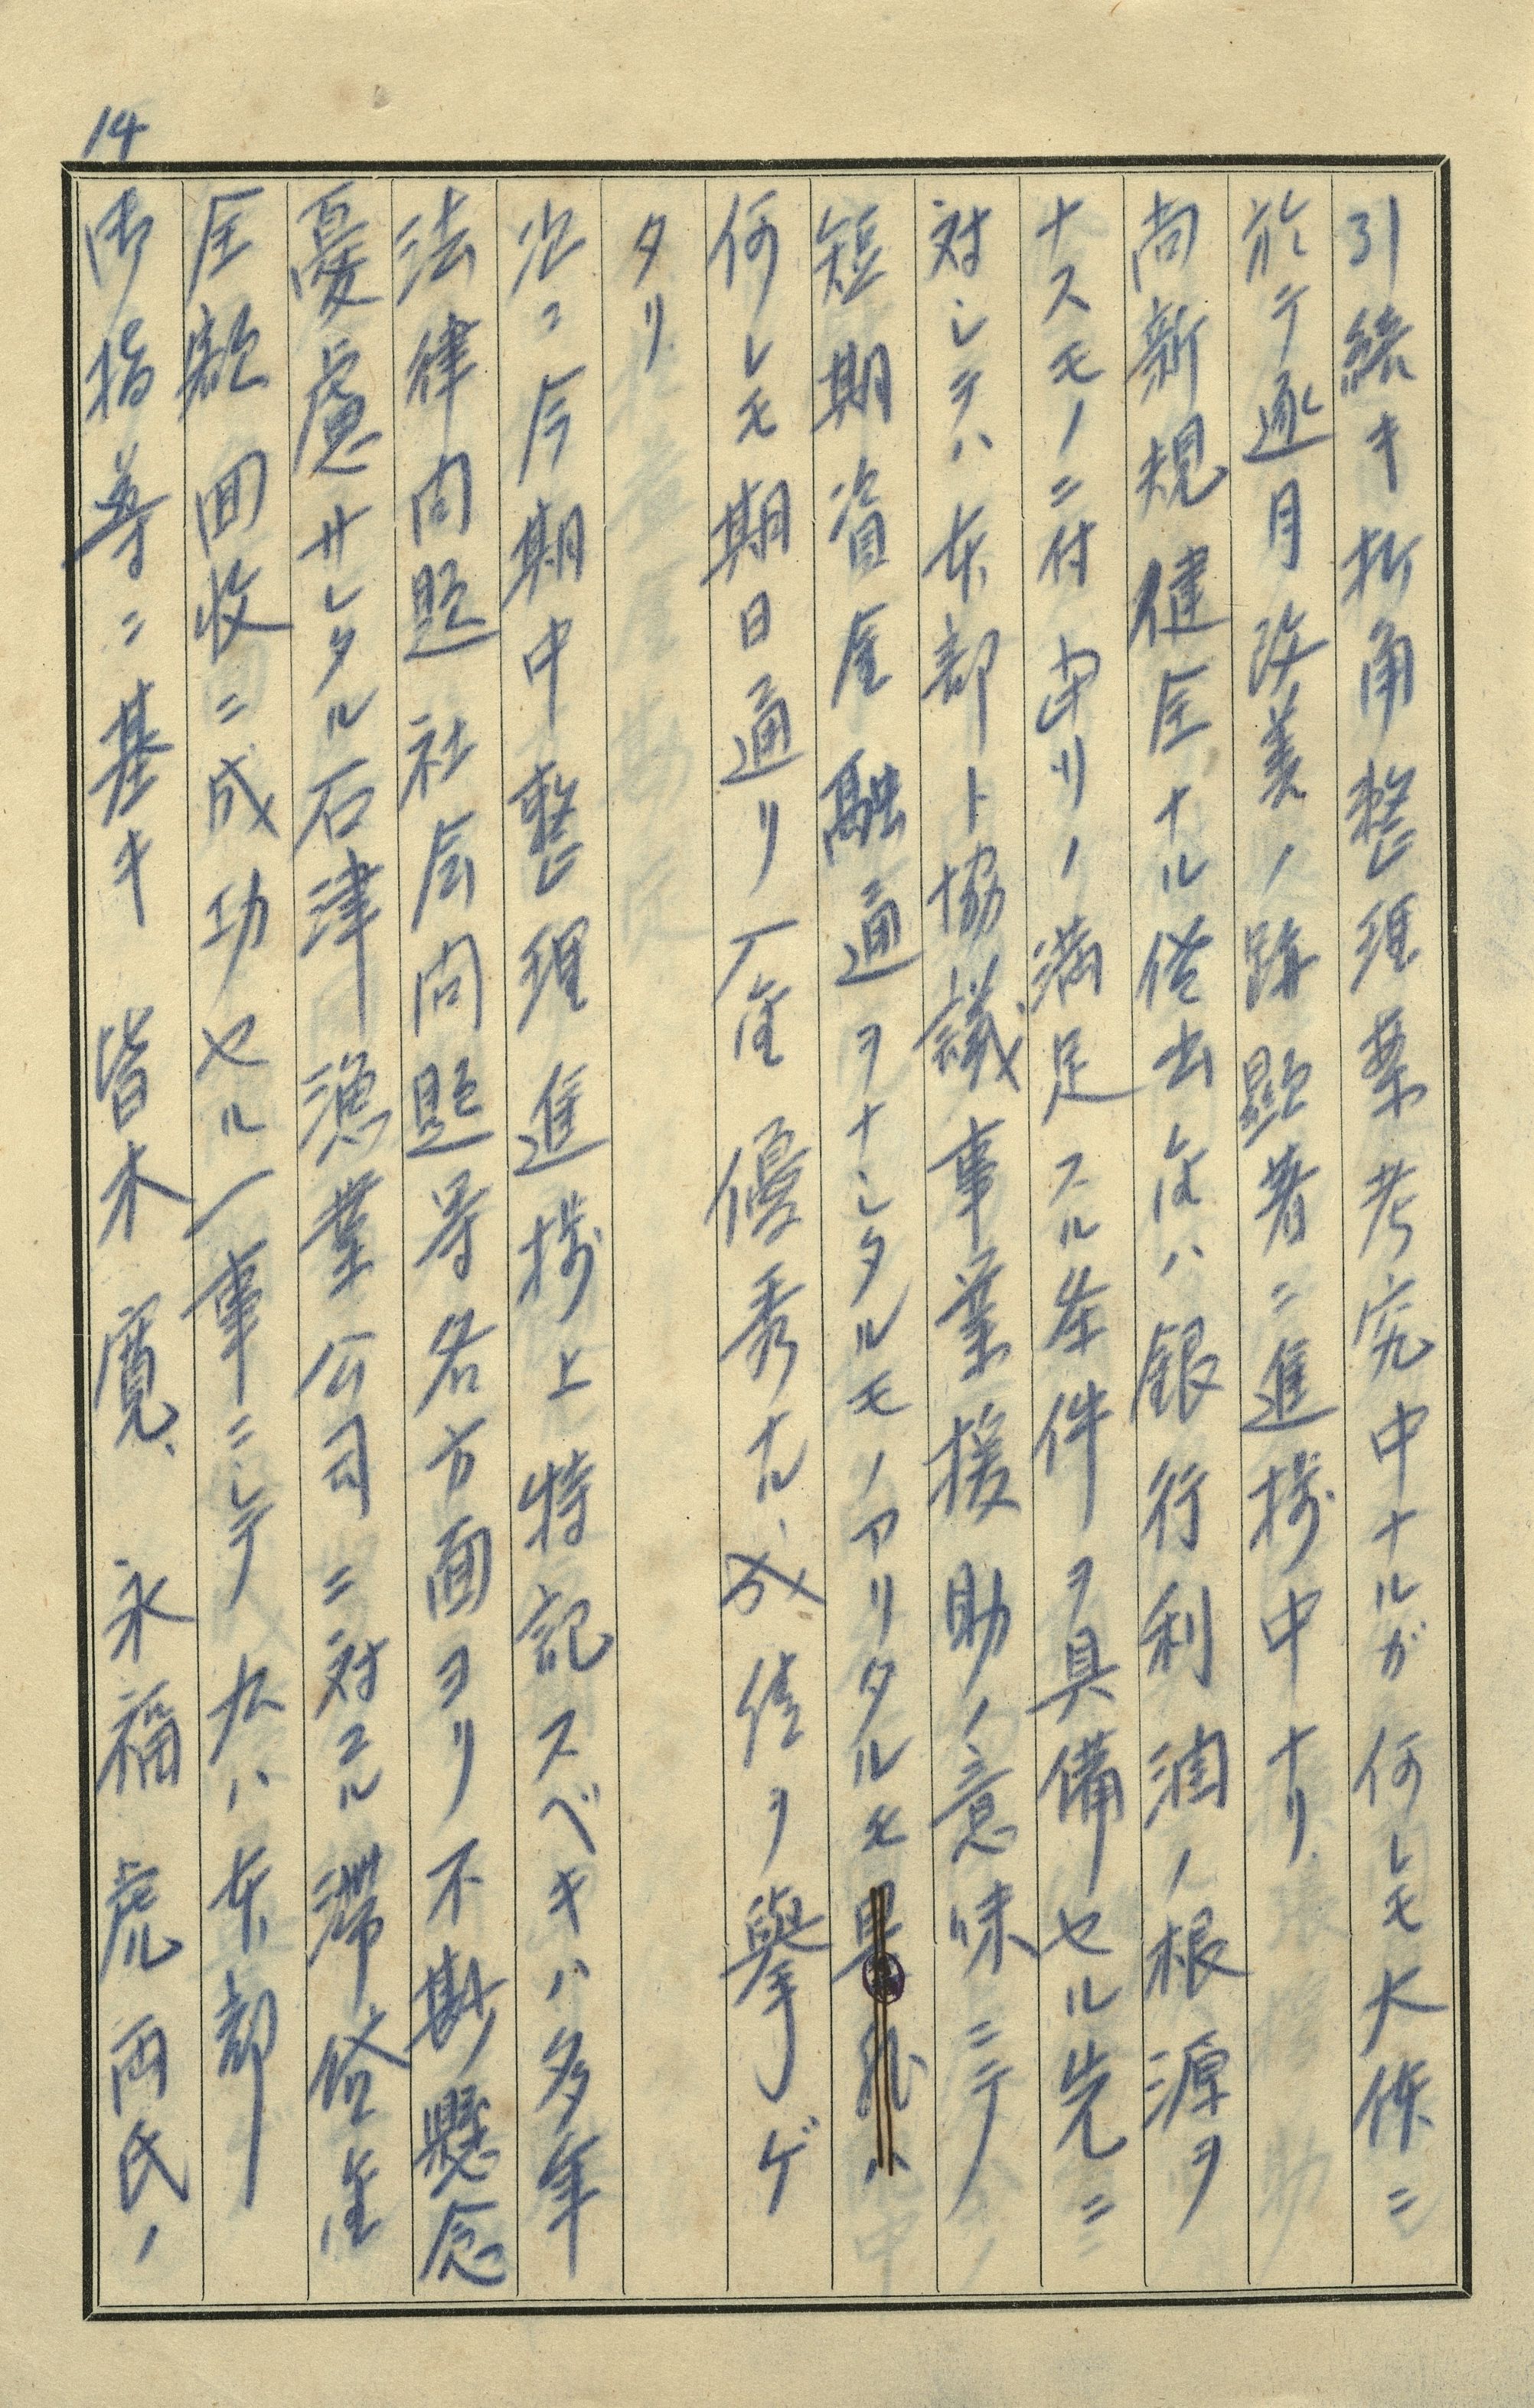 14
引続キ折角整理業考究中ナルガ何レモ大体ニ
於テ逐月改善ノ跡顕著ニ進捗中ナリ
尚新規健全ナル貸出金ハ銀行利潤ノ根源ヲ
ナスモノニ付 出リノ満足スル条件ヲ具備セル先ニ
対シテハ本部ト協議事業援助ノ意味ニテ
短期資金融通ヲナシタルモノアリタルモ
何レモ期日通リ入金優秀ナル成佳ヲ擧ゲ
タリ
尚今期中整理進捗上特記スベキハ多年
法律問題社会問題等各方面ヨリ不尠懸念
憂慮サレタル石津漁業公司ニ対スル滞貸金
全額回收ニ成功セル一事ニシテ 右ハ本部
御指導ニ基キ皆木寛、永福虎両氏ノ